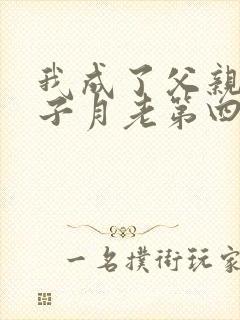 我成了父亲
子月老第四
一名撲街玩家